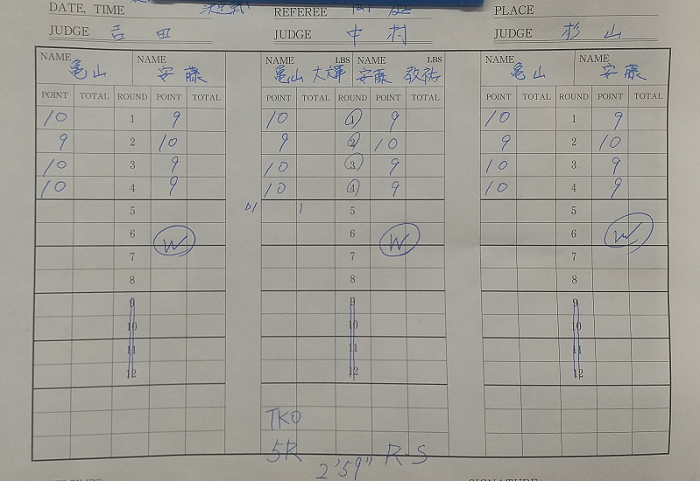 DATE, TIME REFEREE PLACE
JUDGE 吉田 JUDGE 中村 JUDGE 杉山
NAME 亀山 NAME 安藤 NAME 亀山大輝 LBS NAME 安藤教祐 LBS NAME 亀山 NAME 安藤
POINT TOTAL ROUND POINT TOTAL POINT TOTAL ROUND POINT TOTAL POINT TOTAL ROUND POINT TOTAL
10 1 9 10 1 9 10 1 9
9 2 10 9 2 10 9 2 10
10 3 9 10 3 9 10 3 9
10 4 9 10 4 9 10 4 9
5 5 5
6 W 6 W 6 W
7 7 7
8 8 8
9 9 9
10 10 10
11 11 11
12 12 12
TKO
5R 2'59" R-S